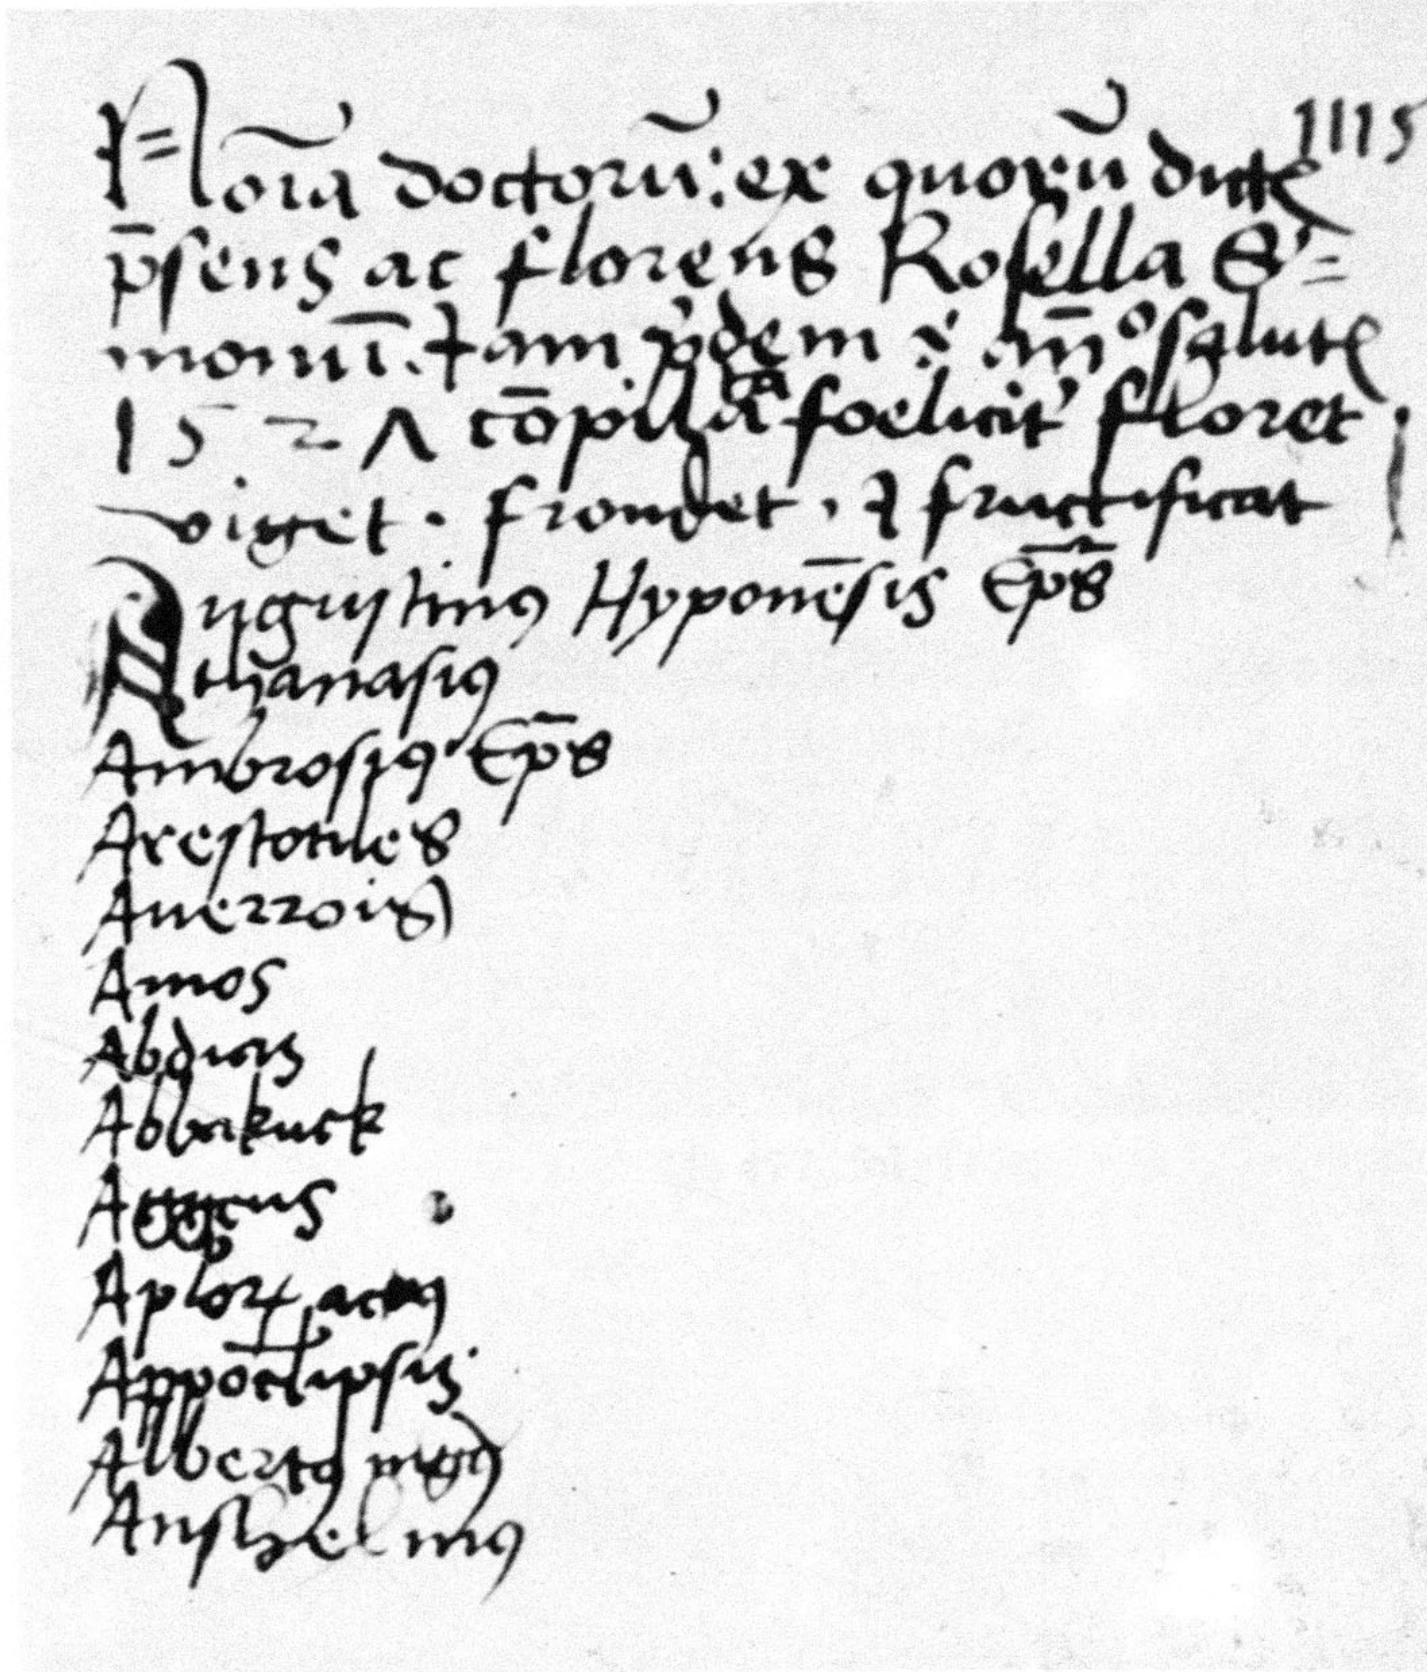 1115
Noīa doctorū: ex quorū dictꝭ
p̄sens ac florens Rosella S'=
monuī. tam p'dem ī ān° salutꝭ
1527 cōpilata foelicit' floret
viget. frondet. & fructificat
Augustinꝰ Hyponēsis Ep̄s
Athanasiꝰ
Ambrosiꝰ Ep̄s
Arestotiles
Auerrois
Amos
Abdias
Abbakuck
Aggeus
Aplorꝝ actꝰ
Appōclipsis
Albertꝰ mgꝰ
Anshelmꝰ